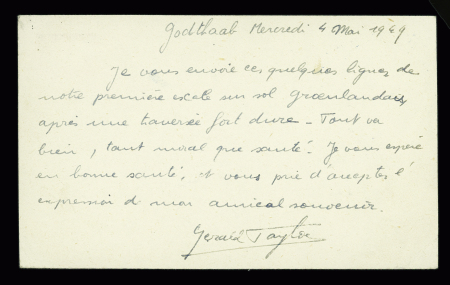 Godthaab Mercredi 4 Mai 1949
Je vous envoie ces quelques lignes de
notre première escale sur sol groenlandais
après une traversée fort dure - Tout va
bien, tant moral que santé. Je vous espère
en bonne santé, et vous prie d'accepter l'
expression de mon amical souvenir.
Gerald Taylor